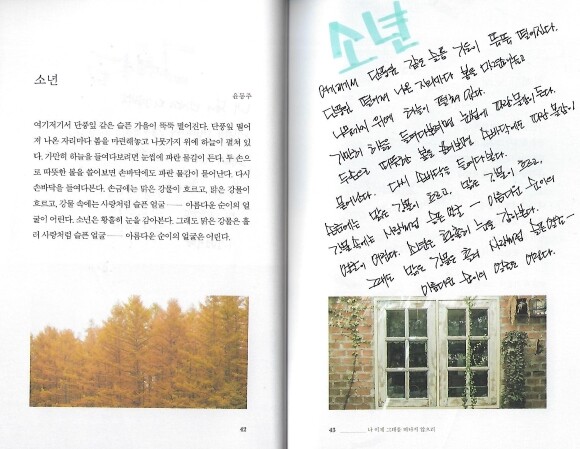 소년
윤동주
여기저기서 단풍잎 같은 슬픈 가을이 뚝뚝 떨어진다. 단풍잎 떨어
져 나온 자리마다 봄을 마련해놓고 나뭇가지 위에 하늘이 펼쳐 있
다. 가만히 하늘을 들여다보려면 눈썹에 파란 물감이 든다. 두 손으
로 따뜻한 볼을 쓸어보면 손바닥에도 파란 물감이 묻어난다. 다시
손바닥을 들여다본다. 손금에는 맑은 강물이 흐르고, 맑은 강물이
흐르고, 강물 속에는 사랑처럼 슬픈 얼굴── 아름다운 순이의 얼
굴이 어린다. 소년은 황홀히 눈을 감아본다. 그래도 맑은 강물은 흘
러 사랑처럼 슬픈 얼굴── 아름다운 순이의 얼굴은 어린다.
42
소년
여기저기서 단풍잎 같은 슬픈 가을이 뚝뚝 떨어진다.
단풍잎 떨어져 나온 자리마다 봄을 마련해놓고
나뭇가지 위에 하늘이 펼쳐 있다.
가만히 하늘을 들여다보려면 눈썹에 파란 물감이 든다.
두 손으로 따뜻한 볼을 쓸어보면 손바닥에도 파란 물감이
묻어난다. 다시 손바닥을 들여다본다.
손금에는 맑은 강물이 흐르고, 맑은 강물이 흐르고,
강물 속에는 사랑처럼 슬픈 얼굴 — 아름다운 순이의
얼굴이 어린다. 소년은 황홀히 눈을 감아본다.
그래도 맑은 강물은 흘러 사랑처럼 슬픈 얼굴 —
아름다운 순이의 얼굴은 어린다.
43 ____ 나 이제 그대를 떠나지 않으리